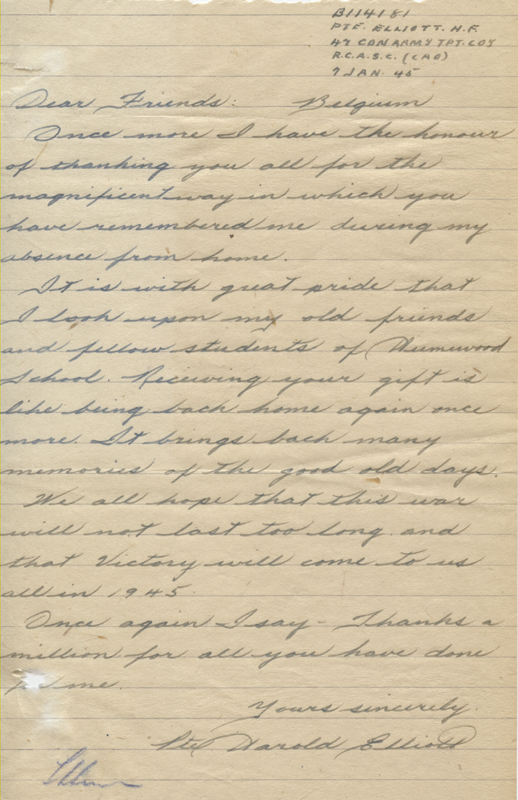 B114181
PTE. ELLIOTT. H.F.
47 CDN ARMY TPT. COY
R.C.A.S.C. (CAO)
7 JAN. 45
Dear Friends: Belgium
Once more I have the honour
of thanking you all for the
magnificent way in which you
have remembered me during my
absence from home.
It is with great pride that
I look upon my old friends
and fellow students of Humewood
School. Receiving your gift is
like being back home again once
more. It brings back many
memories of the good old days.
We all hope that this war
will not last too long and
that Victory will come to us
all in 1945.
Once again I say - Thanks a
million for all you have done
for me.
Yours sincerely.
Pte Harold Elliott